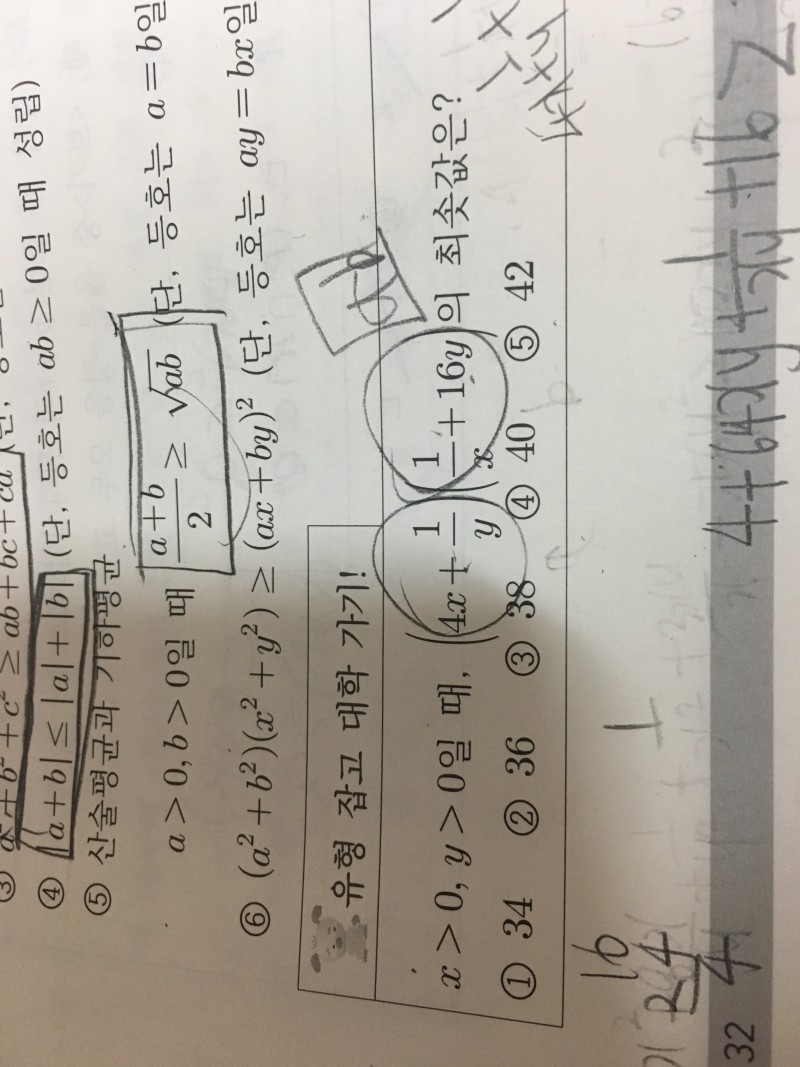 ③ a² + b² + c² ≥ ab + bc + ca
④ |a+b| ≤ |a| + |b| (단, 등호는 ab ≥ 0일 때 성립)
⑤ 산술평균과 기하평균
a > 0, b > 0일 때 (a+b)/2 ≥ √ab (단, 등호는 a = b일
⑥ (a² + b²)(x² + y²) ≥ (ax + by)² (단, 등호는 ay = bx일
유형 잡고 대학 가기!
x > 0, y > 0일 때, (4x + 1/y)(1/x + 16y)의 최솟값은?
① 34 ② 36 ③ 38 ④ 40 ⑤ 42
16
4 + 64xy + 1/xy + 16 ≥
32